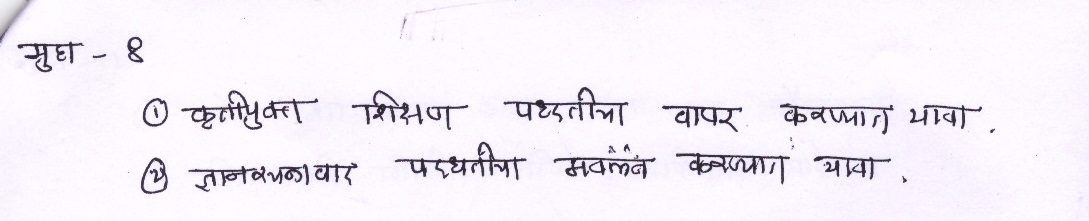 मुद्दा - ४
① कृतीयुक्त शिक्षण पध्दतीचा वापर करण्यात यावा .
② ज्ञानरचनावाद पध्दतीचा अवलंब करण्यात यावा .